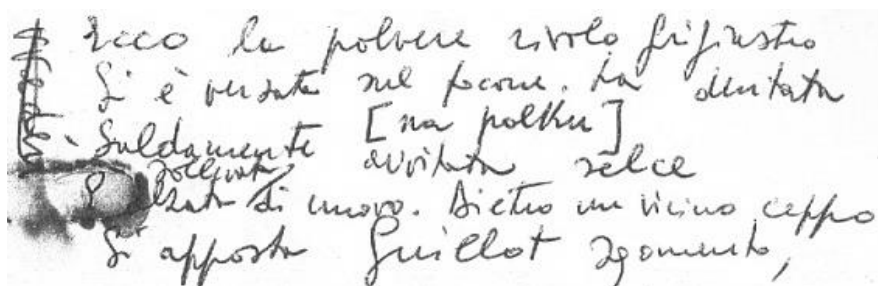 Ecco la polvere rivolo grigiastro
Si è versata sul focone. La dentata
Saldamente [na polku]
sollevata avvitata selce
alzata di nuovo. Dietro un vicino ceppo
Si apposta Guillot sgomento,